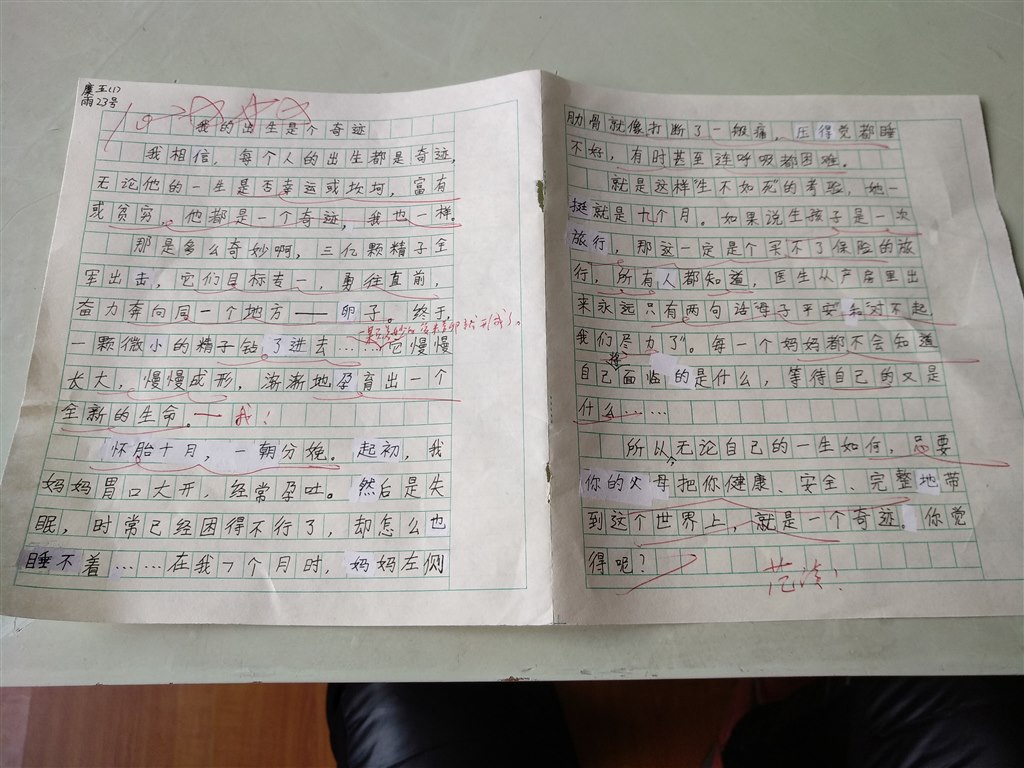 五(1)
雨23号
我的出生是个奇迹
我相信，每个人的出生都是奇迹，
无论他的一生是否幸运或坎坷，富有
或贫穷，他都是一个奇迹，我也一样。
那是多么奇妙啊，三亿颗精子全
军出击，它们目标专一，勇往直前，
奋力奔向同一个地方——卵子。终于，
一颗微小的精子钻了进去……它慢慢
长大，慢慢成形，渐渐地孕育出一个
全新的生命。—我！
“怀胎十月，一朝分娩。起初，我
妈妈胃口大开，经常孕吐。然后是失
眠，时常已经困得不行了，却怎么也
睡不着……在我7个月时，妈妈左侧
肋骨就像打断了一般痛，压得觉都睡
不好，有时甚至连呼吸都困难。
就是这样“生不如死”的考验，她一
挺就是九个月。如果说生孩子是一次
旅行，那这一定是个买不了保险的旅
行，所有人都知道，医生从产房里出
来永远只有两句话“母子平安”和“对不起
我们尽力了”。每一个妈妈都不会知道
自己将面临的是什么，等待自己的又是
什么……
所以无论自己的一生如何，只要
你的父母把你健康、安全、完整地带
到这个世界上，就是一个奇迹。你觉
得呢？
范读！